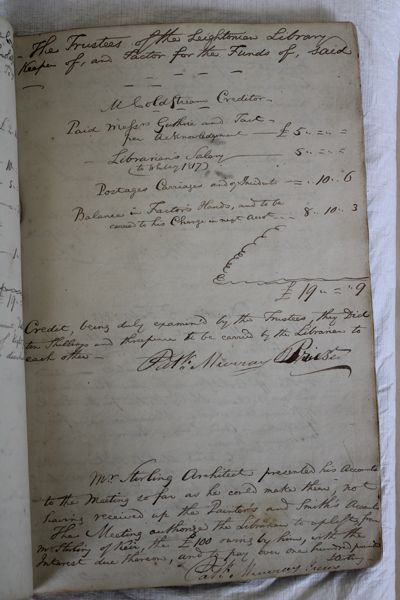 The Trustees of the Leightonian Library
Keeper of, and Factor for the Funds of, said
Mr Coldstream Creditor
Paid Messrs Guthrie and Tait
per Acknowledgement £5 " = "
Librarians Salary 5 " = "
(to May 1817)
Postages Carriages and Incidents = " 10 " 6
Balance in Factor's Hands, and to be
carried to his Charge in next Acct. 8 " 10 " 3
£19 " = " 9
Credit, being duly examined by the Trustees, they Did
ten Shillings and threepence to be carried by the Librarian to
each other
Patk. Murray
Mr Stirling Architect presented his Accounts
to the Meeting so far as he could make them, not
having received up the Painter's and Smith's Accounts
The Meeting authorize the Librarian to uplift from
Mr Stirling of Keir, the £100 owing by him, with the
Interest due thereon, and to pay over one hundred pounds
Patk. Murray